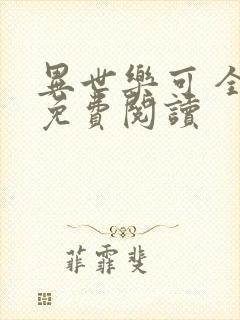 異世樂可 全
免費閱讀
菲霏斐